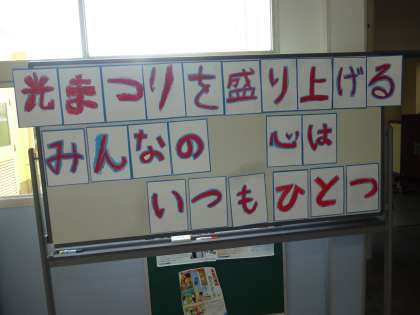 光まつりを盛り上げる
みんなの 心は
いつもひとつ